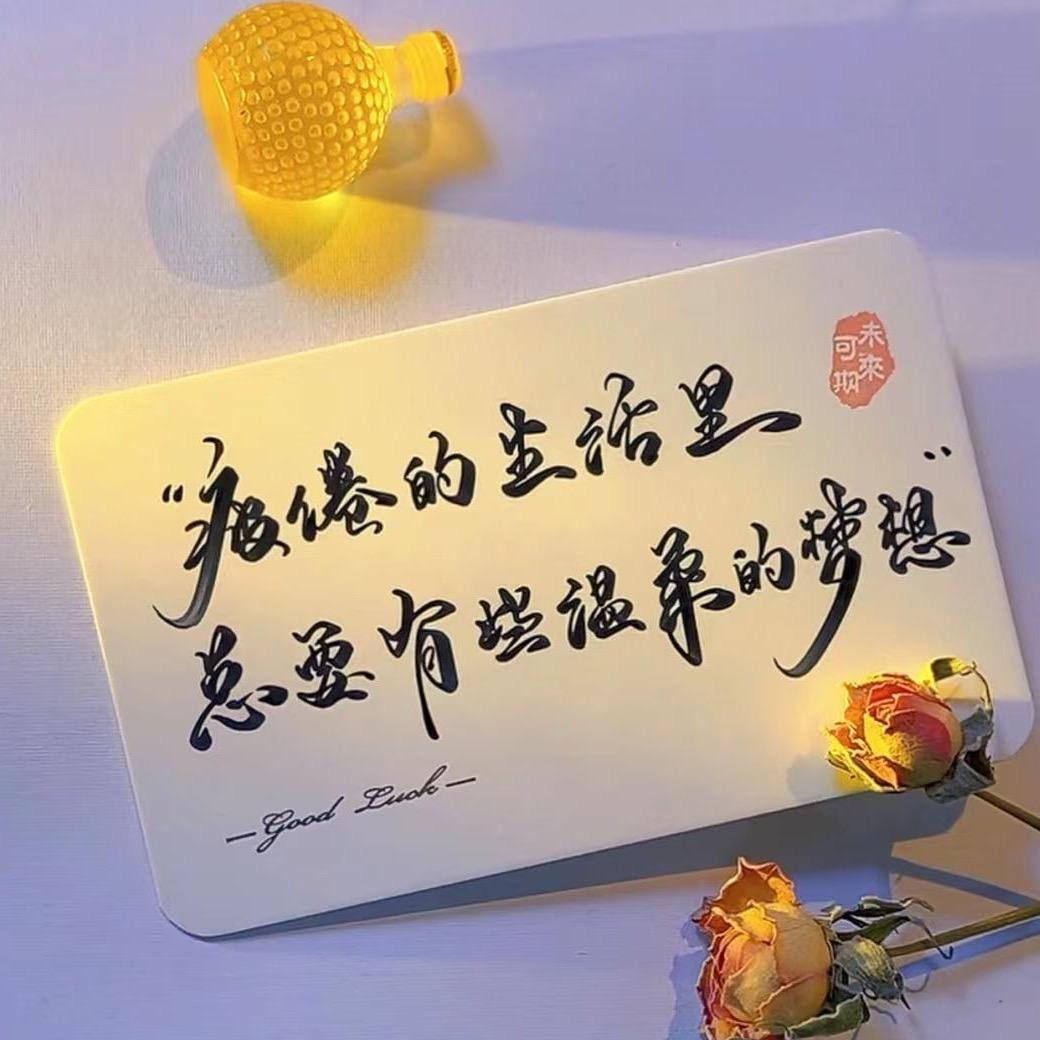 “疲倦的生活里
总要有些温柔的梦想”
—Good Luck—
未來
可期